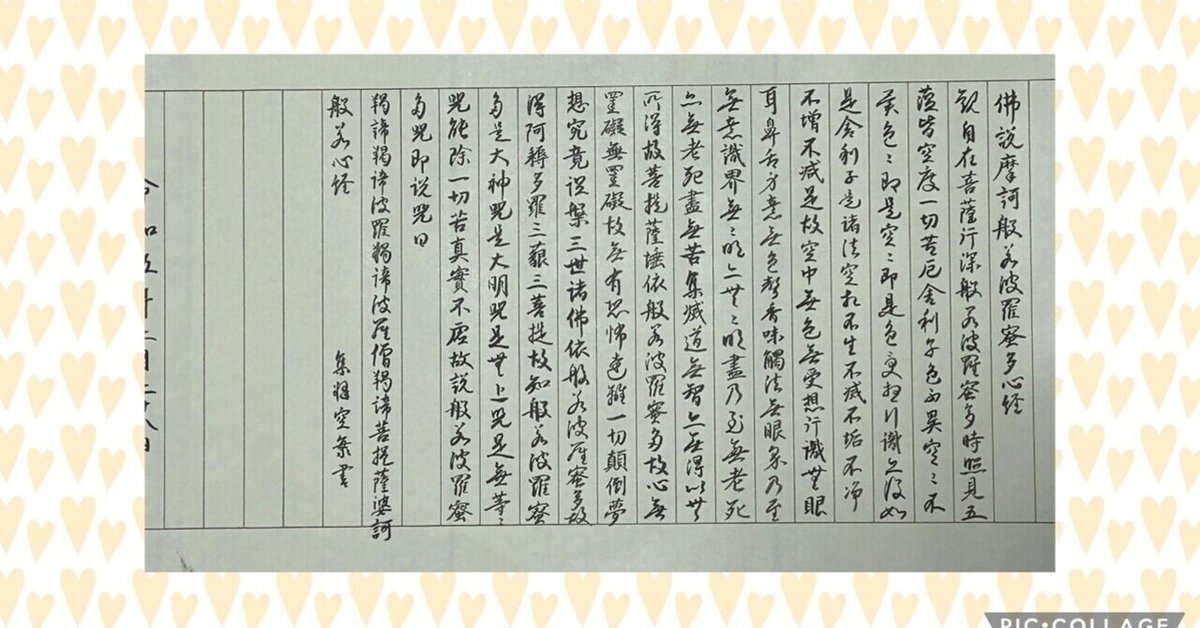 佛説摩訶般若波羅蜜多心経
観自在菩薩行深般若波羅蜜多時照見五
蘊皆空度一切苦厄舎利子色不異空〻不
異色〻即是空〻即是色受想行識亦復如
是舎利子是諸法空相不生不滅不垢不浄
不増不減是故空中無色無受想行識無眼
耳鼻舌身意無色聲香味觸法無眼界乃至
無意識界無〻明亦無〻明盡乃至無老死
亦無老死盡無苦集滅道無智亦無得以無
所得故菩提薩埵依般若波羅蜜多故心無
罣礙無罣礙故無有恐怖遠離一切顛倒夢
想究竟涅槃三世諸佛依般若波羅蜜多故
得阿耨多羅三藐三菩提故知般若波羅蜜
多是大神咒是大明咒是無上咒是無等〻
咒能除一切苦真實不虚故説般若波羅蜜
多咒即説咒曰
羯諦羯諦波羅羯諦波羅僧羯諦菩提薩婆訶
般若心経
令和五年
PIC•COLLAGE